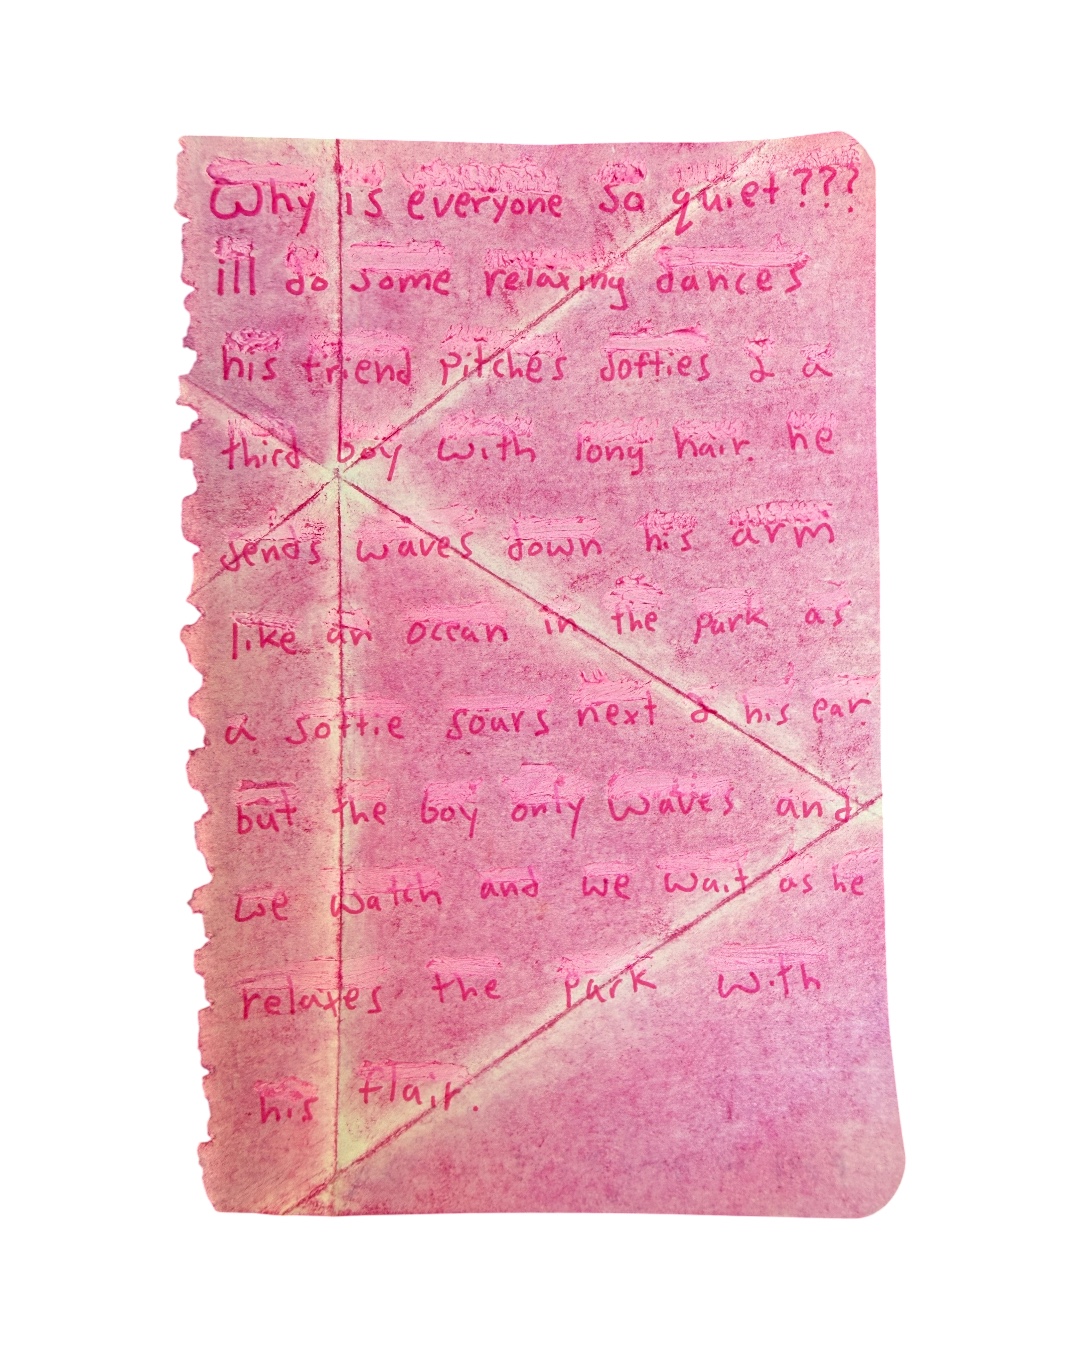 Why is everyone so quiet???
ill do some relaxing dances
his friend pitches softies 2 a
third boy with long hair. he
sends waves down his arm
like an ocean in the park as
a softie soars next 2 his ear.
but the boy only waves and
we watch and we wait as he
relaxes the park with
his flair.